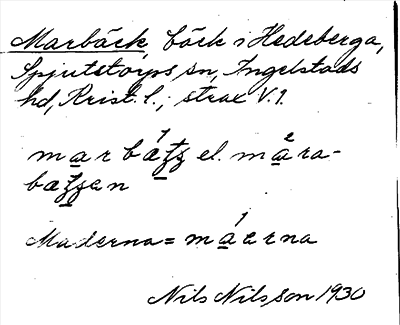 Marbäck, bäck i Hedeberga,
Spjutstorps sn, Ingelstads
hd, Krist. l.; strax V. 1.
marbätz el. måra-
bätzen
Maderna = måerna
Nils Nilsson 1930